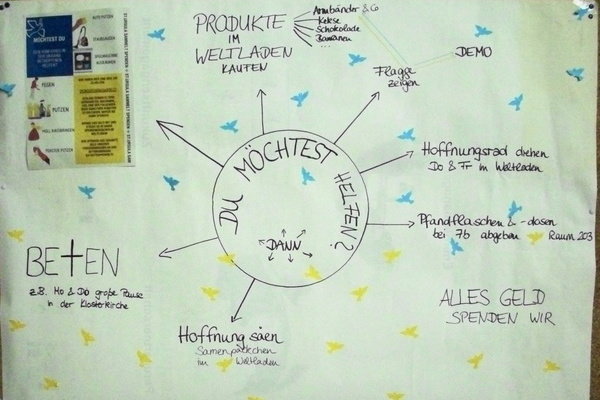 MÖCHTEST DU
FEGEN
PUTZEN
MÜLL RAUSBRINGEN
FENSTER PUTZEN
AUTO PUTZEN
STAUBSAUGEN
PRODUKTE
IM
WELTLADEN
KAUFEN
Armbänder & Co
Kekse
Schokolade
Bananen
...
Flagge
zeigen
DEMO
DU MÖCHTEST HELFEN?
DANN
Hoffnungsrad drehen
Do & Fr im Weltladen
Pfandflaschen & -dosen
bei 7b abgeben Raum 203
BETEN
z.B. Mo & Do große Pause
in der Klosterkirche
Hoffnung säen
Samenpäckchen
im Weltladen
ALLES GELD
SPENDEN WIR